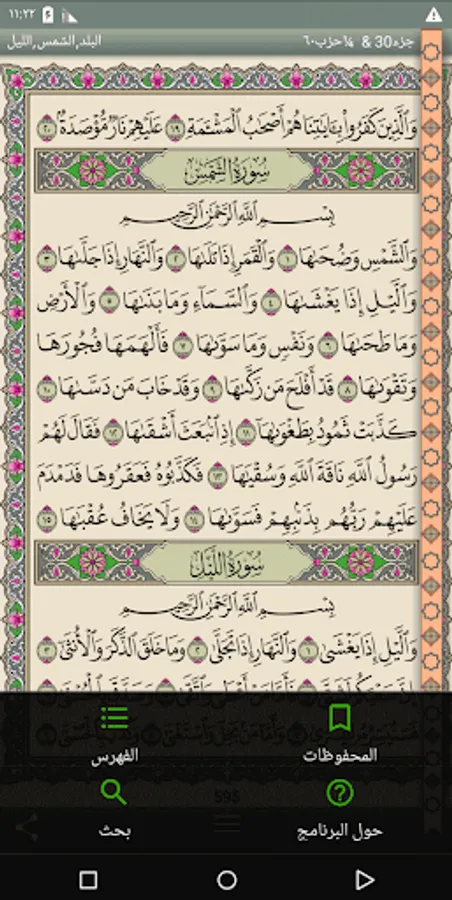 ١١:٢٢
جزء30 & ¼حزب٦٠
البلد,الشمس,الليل
وَالَّذِينَ كَفَرُوا۟ بِـَٔايَـٰتِنَا هُمْ أَصْحَـٰبُ الْمَشْـَٔمَةِ ١٩ عَلَيْهِمْ نَارٌ مُّؤْصَدَةٌۢ ٢٠
سُورَةُ الشَّمْسِ
بِسْمِ اللَّهِ الرَّحْمَـٰنِ الرَّحِيمِ
وَالشَّمْسِ وَضُحَىٰهَا ١ وَالْقَمَرِ إِذَا تَلَىٰهَا ٢ وَالنَّهَارِ إِذَا جَلَّىٰهَا ٣
وَالَّيْلِ إِذَا يَغْشَىٰهَا ٤ وَالسَّمَآءِ وَمَا بَنَىٰهَا ٥ وَالْأَرْضِ
وَمَا طَحَىٰهَا ٦ وَنَفْسٍ وَمَا سَوَّىٰهَا ٧ فَأَلْهَمَهَا فُجُورَهَا
وَتَقْوَىٰهَا ٨ قَدْ أَفْلَحَ مَن زَكَّىٰهَا ٩ وَقَدْ خَابَ مَن دَسَّىٰهَا ١٠
كَذَّبَتْ ثَمُودُ بِطَغْوَىٰهَآ ١١ إِذِ انۢبَعَثَ أَشْقَىٰهَا ١٢ فَقَالَ لَهُمْ
رَسُولُ اللَّهِ نَاقَةَ اللَّهِ وَسُقْيَـٰهَا ١٣ فَكَذَّبُوهُ فَعَقَرُوهَا فَدَمْدَمَ
عَلَيْهِمْ رَبُّهُم بِذَنۢبِهِمْ فَسَوَّىٰهَا ١٤ وَلَا يَخَافُ عُقْبَـٰهَا ١٥
سُورَةُ اللَّيْلِ
بِسْمِ اللَّهِ الرَّحْمَـٰنِ الرَّحِيمِ
وَالَّيْلِ إِذَا يَغْشَىٰ ١ وَالنَّهَارِ إِذَا تَجَلَّىٰ ٢ وَمَا خَلَقَ الذَّكَرَ وَالْأُنثَىٰٓ ٣
المحفوظات
الفهرس
595
حول البرنامج
بحث